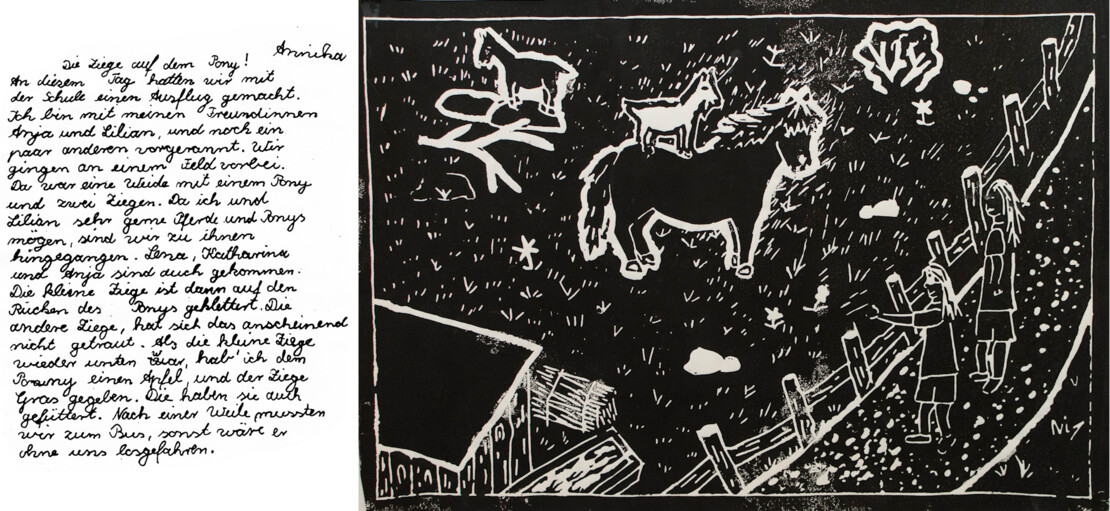 Annika
Die Ziege auf dem Pony!
An diesem Tag hatten wir mit
der Schule einen Ausflug gemacht.
Ich bin mit meinen Freundinnen
Anja und Lilian, und noch ein
paar anderen vorgerannt. Wir
gingen an einem Feld vorbei.
Da war eine Weide mit einem Pony
und zwei Ziegen. Da ich und
Lilian sehr gerne Pferde und Ponys
mögen, sind wir zu ihnen
hingegangen. Lena, Katharina
und Anja sind auch gekommen.
Die kleine Ziege ist dann auf den
Rücken des Ponys geklettert. Die
andere Ziege, hat sich das anscheinend
nicht getraut. Als die kleine Ziege
wieder unten war, hab' ich dem
Pony einen Apfel, und der Ziege
Gras gegeben. Die haben sie auch
gefüttert. Nach einer Weile mussten
wir zum Bus, sonst wäre er
ohne uns losgefahren.